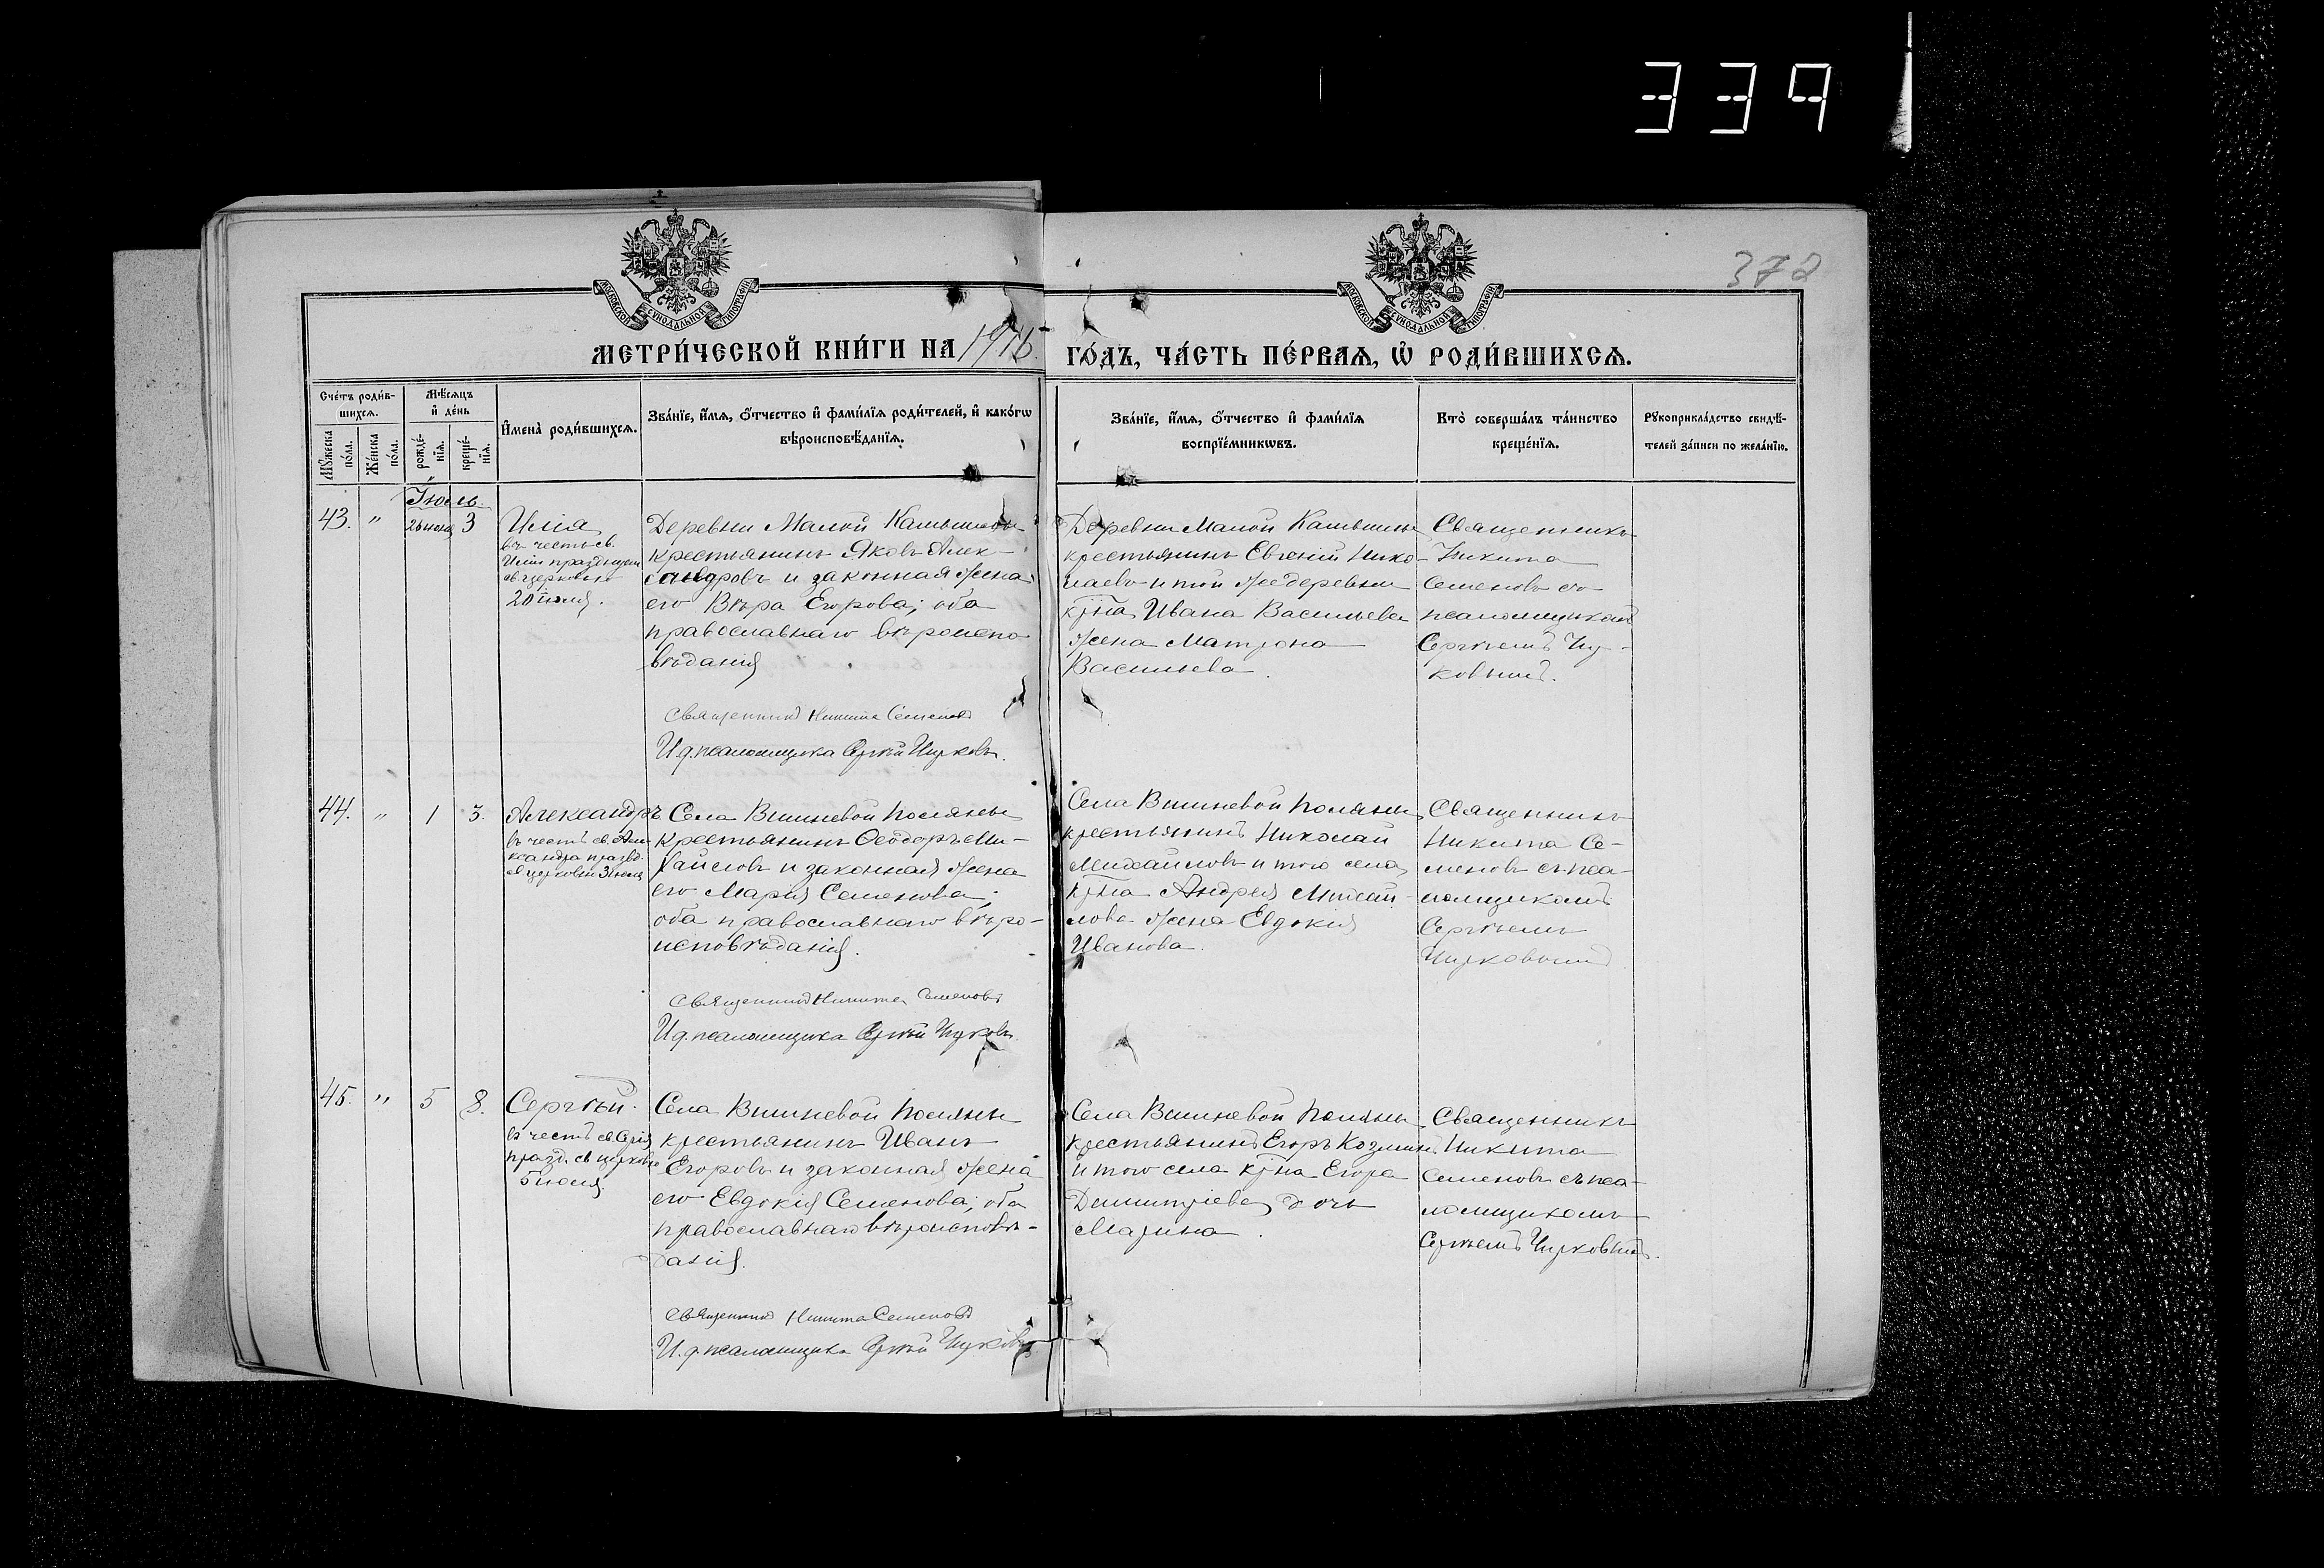 339
372
МОСКОВСКОЙ СѴНОДАЛЬНОЙ ТИПОГРАФІИ
МОСКОВСКОЙ СѴНОДАЛЬНОЙ ТИПОГРАФІИ
МЕТРИ́ЧЕСКОЙ КНИ́ГИ НА 1916 ГО́ДЪ, ЧА́СТЬ ПЕ́РВАѦ, Ѡ҆ РОДИ́ВШИХСѦ.
Сче́тъ роди́в-
шихсѧ.
Мꙋ́жеска
по́ла.
Же́нска
по́ла.
Мѣ́сѧцъ
и҆ де́нь
рожде́-
нїѧ.
креще́-
нїѧ.
И҆мена̀ роди́вшихсѧ.
Зва́нїе, и҆́мѧ, ѻ҆́тчество и҆ фами́лїѧ роди́телей, и҆ како́гѡ
вѣроисповѣ́данїѧ.
Зва́нїе, и҆́мѧ, ѻ҆́тчество и҆ фами́лїѧ
воспрїе́мникѡвъ.
Кто̀ соверша́лъ та́инство
креще́нїѧ.
Рꙋкоприкла́дство свидѣ́-
телей за́писи по жела́нїю.
Іюль
43. " 26 іюня 3
Илія
въ честь св.
Иліи празднуем
св. церковью
20 іюля.
Деревни Малой Камышинки
крестьянинъ Яковъ Алек-
сандровъ и законная жена
его Вѣра Егорова; оба
православнаго вѣроиспо
вѣданія
Священникъ Никита Семеновъ
И.д. псаломщика Сергѣй Чурковъ.
Деревни Малой Камышинки
крестьянинъ Евгеній Нико-
лаевъ и той же деревни
кр̃на Ивана Васильева
жена Матрона
Васильева.
Священникъ
Никита
Семеновъ со
псаломщикомъ
Сергѣемъ Чу-
ковымъ.
44. " 1 3.
Александръ
въ честь св. Але-
ксандра празд.
св. церковью 3 іюля
Села Вишневой Поляны
крестьянинъ Ѳеодоръ Ми-
хайловъ и законная жена
его Марія Семенова;
оба православнаго вѣро-
исповѣданія.
Священникъ Никита Семеновъ
И.д. псаломщика Сергѣй Чурковъ
Села Вишневой Поляны
крестьянинъ Николай
Михайловъ и того села
кр̃на Андрея Михай-
лова жена Евдокія
Иванова.
Священникъ
Никита Се-
меновъ съ пса-
ломщикомъ
Сергѣемъ
Чурковымъ
45. " 5 8.
Сергѣй.
въ честь св. Сергія
празд. св. церковью
5 іюля
Села Вишневой Поляны
крестьянинъ Иванъ
Егоровъ и законная жена
его Евдокія Семенова; оба
православнаго вѣроисповѣ-
данія.
Священникъ Никита Семеновъ
И.д. псаломщика Сергѣй Чурковъ
Села Вишневой Поляны
крестьянинъ Егоръ Козминъ
и того села кр̃на Егора
Димитріева дочь
Марина.
Священникъ
Никита
Семеновъ съ пса-
ломщикомъ
Сергѣемъ Чурковымъ.